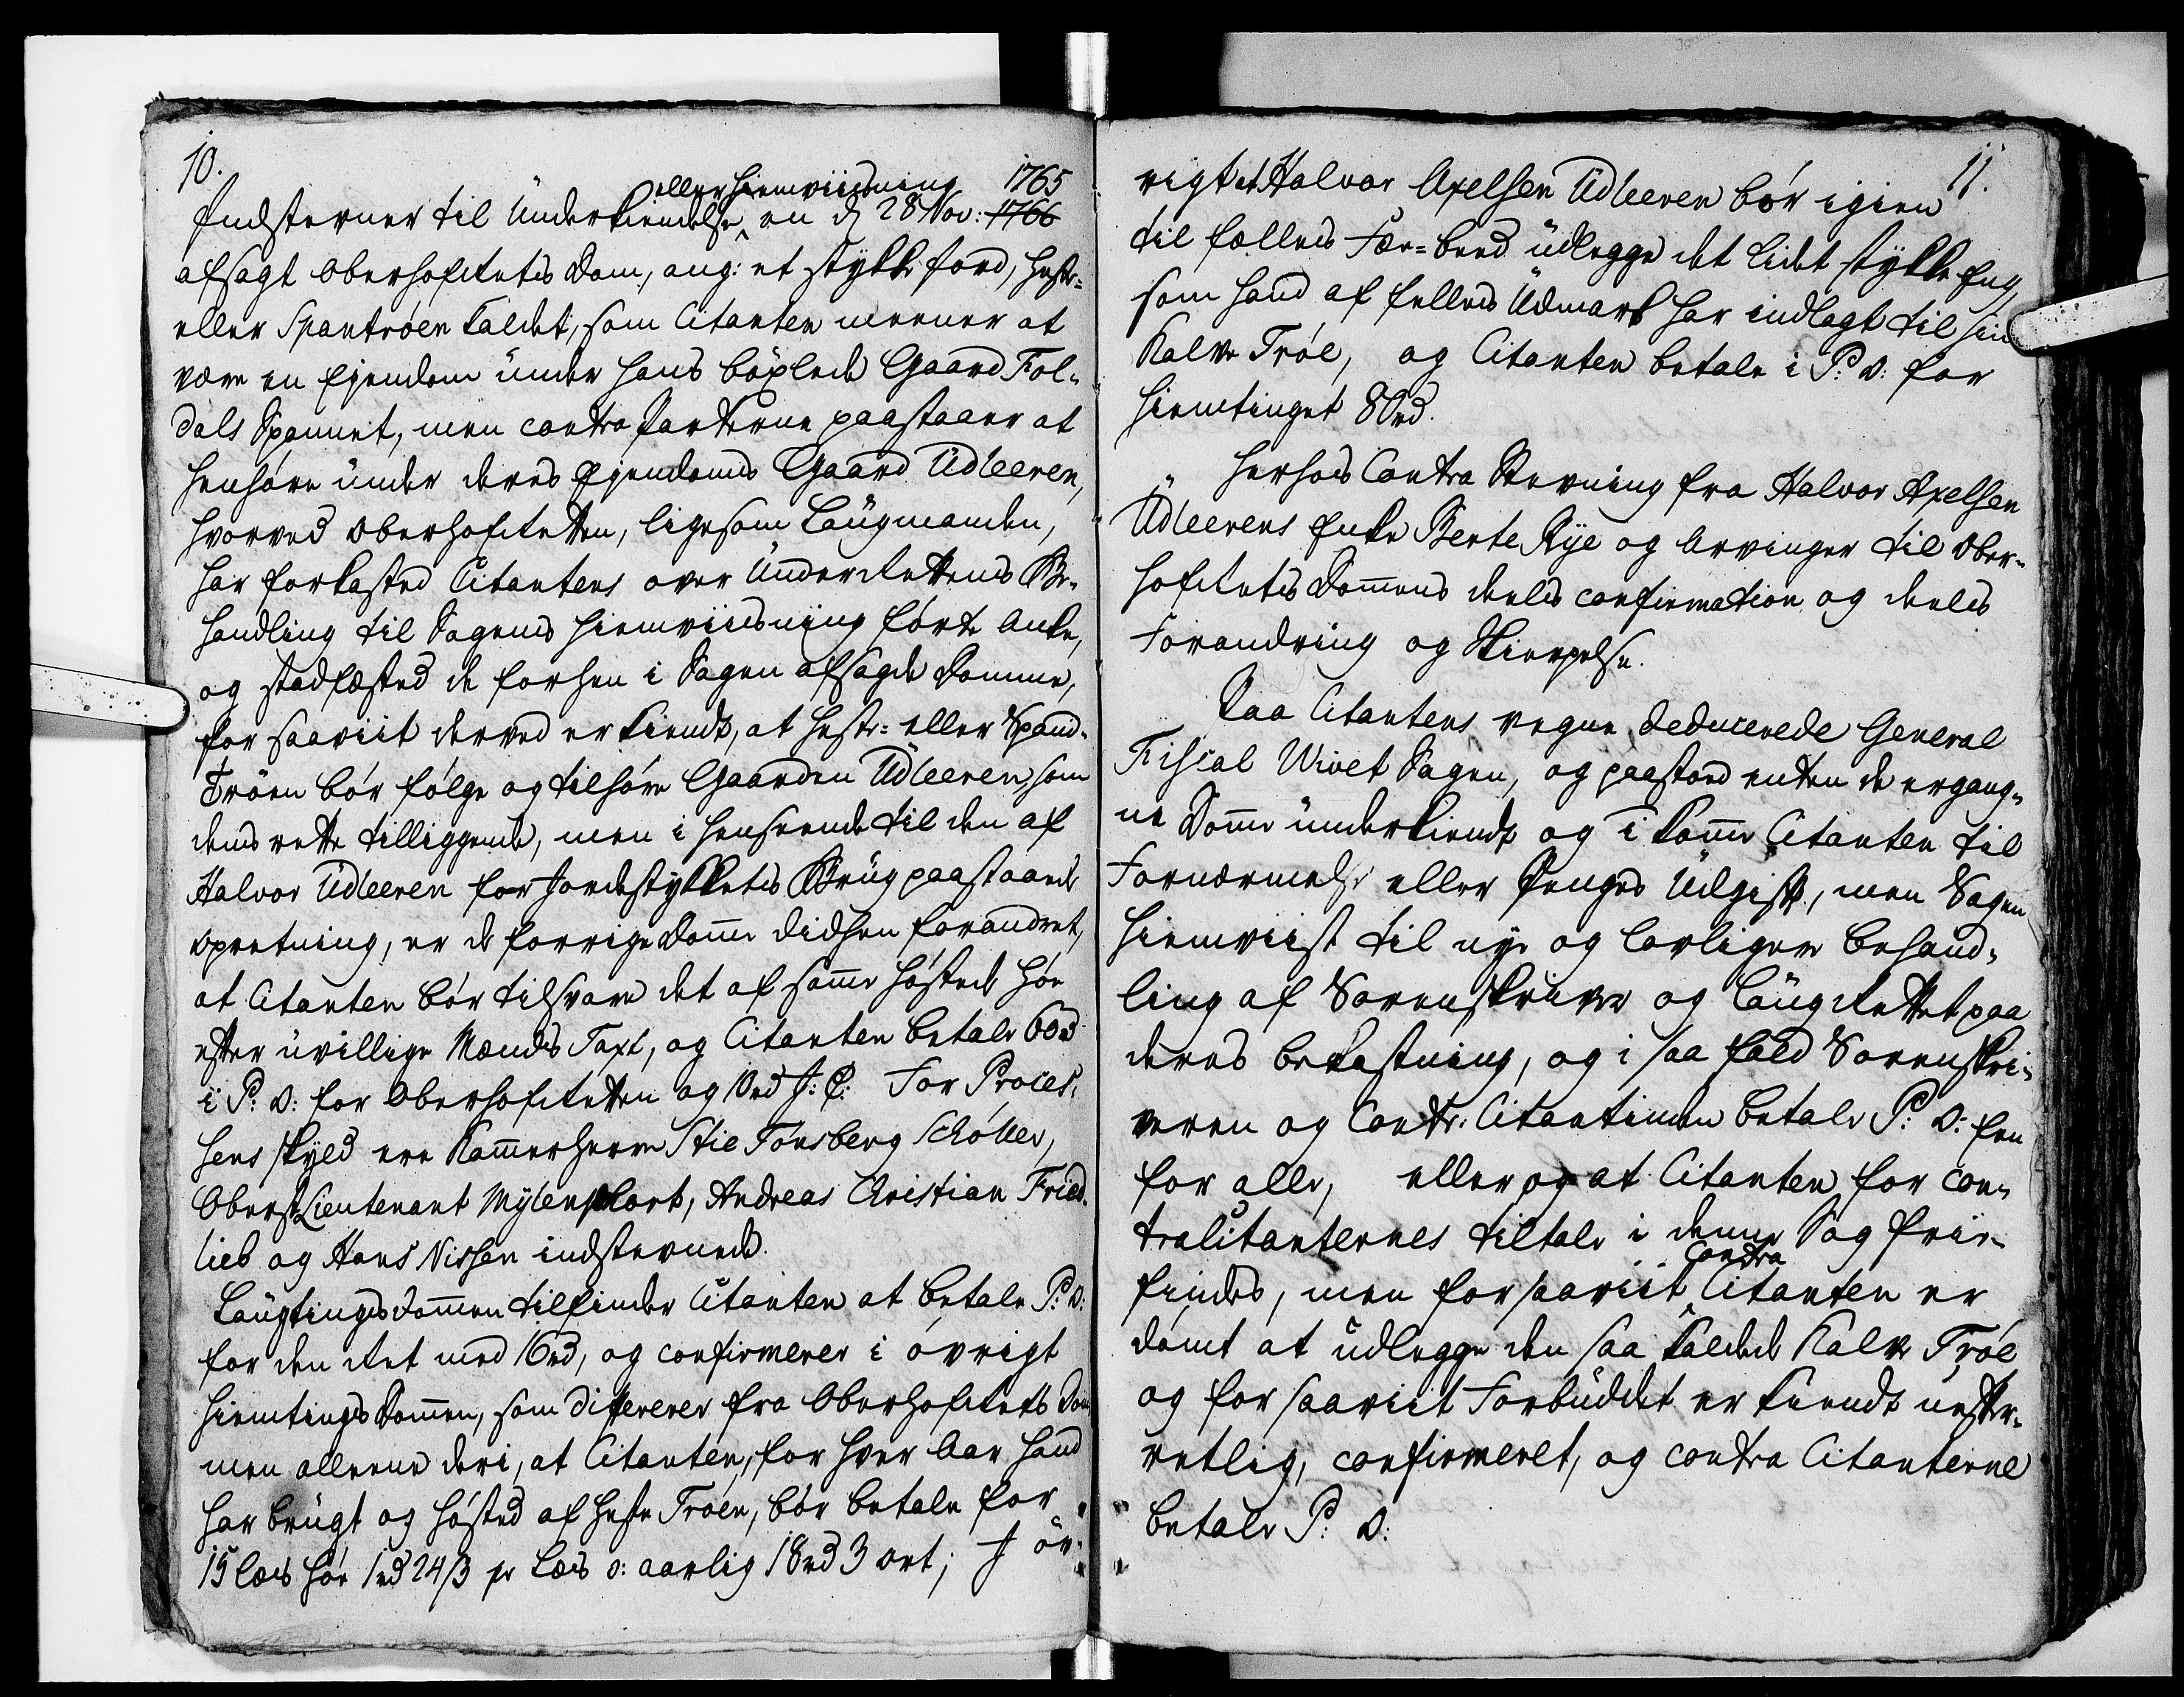 10.
eller Hiemviisning 1765
Indstevner til Underkiendelse en d. 28 Nov: 1766
afsagt Oberhofrettes Dom, ang: et stykke Jord, Heste-
eller Spantrøen kaldet, som Citanten meener at
være en Ejendom under hans bøxlede Gaard Fol-
dals Spannet, men contraparterne paastaaer at
henhøre under deres Ejendoms Gaard Udleeren,
hvorved Oberhofretten, ligesom Laugmanden,
har forkasted Citantens over Underrettens Be-
handling til Sagens Hiemviisning førte Anke,
og stadfæsted de forhen i Sagen afsagde Domme,
for saaviit derved er kiendt, at Heste- eller Spand-
Trøen bør følge og tilhøre Gaarden Udleeren, som
dens rette tilliggende, men i henseende til den af
Halvor Udleeren for Jordestykketes Brug paastaaede
opretning, er de forrige Domme didhen forandret,
at Citanten bør tilsvare det af samme høstede Høe
efter uvillige Mænds Taxt, og Citanten betale 60rd
i P: O: for Oberhofretten og 10rd J: C: For Proces-
sens skyld ere Kammerherre Stie Tønsberg Schøller,
Oberst Lieutenant Mylenphort, Andreas Christian Fried-
lieb og Hans Nissen indstevnede.
Laugtingsdommen tilfinder Citanten at betale P: O:
for den Ret med 16rd, og confirmerer i øvrigt
Hiemtings Dommen, som differerer fra Oberhofrettes Dom
men alleene deri, at Citanten, for hver Aar hand
har brugt og høsted af Heste Trøen, bør betale for
15 læs Høe 1rd 24ß pr Læs o: aarlig 18rd 3 ort; I øv-
11.
rigt at Halvor Axelsen Udleeren bør igien
til fælleds Fæe-beed udlegge det lidet stykke Eng,
som hand af fælleds Udmark har indlagt til sin
Kalve Trøe, og Citanten betale i P: O: for
Hiemtinget 80rd.
Herhos Contra Stevning fra Halvor Axelsen
Udleerens Enke Berte Rye og Arvinger til Ober-
hofrettes Dommens deels confirmation og deels
Forandring og Skierpelse.
Paa Citantens vegne deducerede General
Fiscal Uivet Sagen, og paastod enten de ergang-
ne Domme underkiendt og ei komme Citanten til
Fornærmelse eller Penges Udgift, men Sagen
hiemviist til nye og lovligere behand-
ling af Sorenskriver og Laugrettet paa
deres bekostning, og i saa fald Sorenskri-
veren og Contr: Citantinden betale P: O: een
for alle, eller og at Citanten for con-
tracitanternes tiltale i denne Sag frie-
findes, men forsaaviit Contra Citanten er
dømt at udlegge den saa kaldede Kalve Trøe
og for saaviit Forbuddet er kiendt uefter-
retlig, confirmeret, og contra Citanterne
betale P: O: